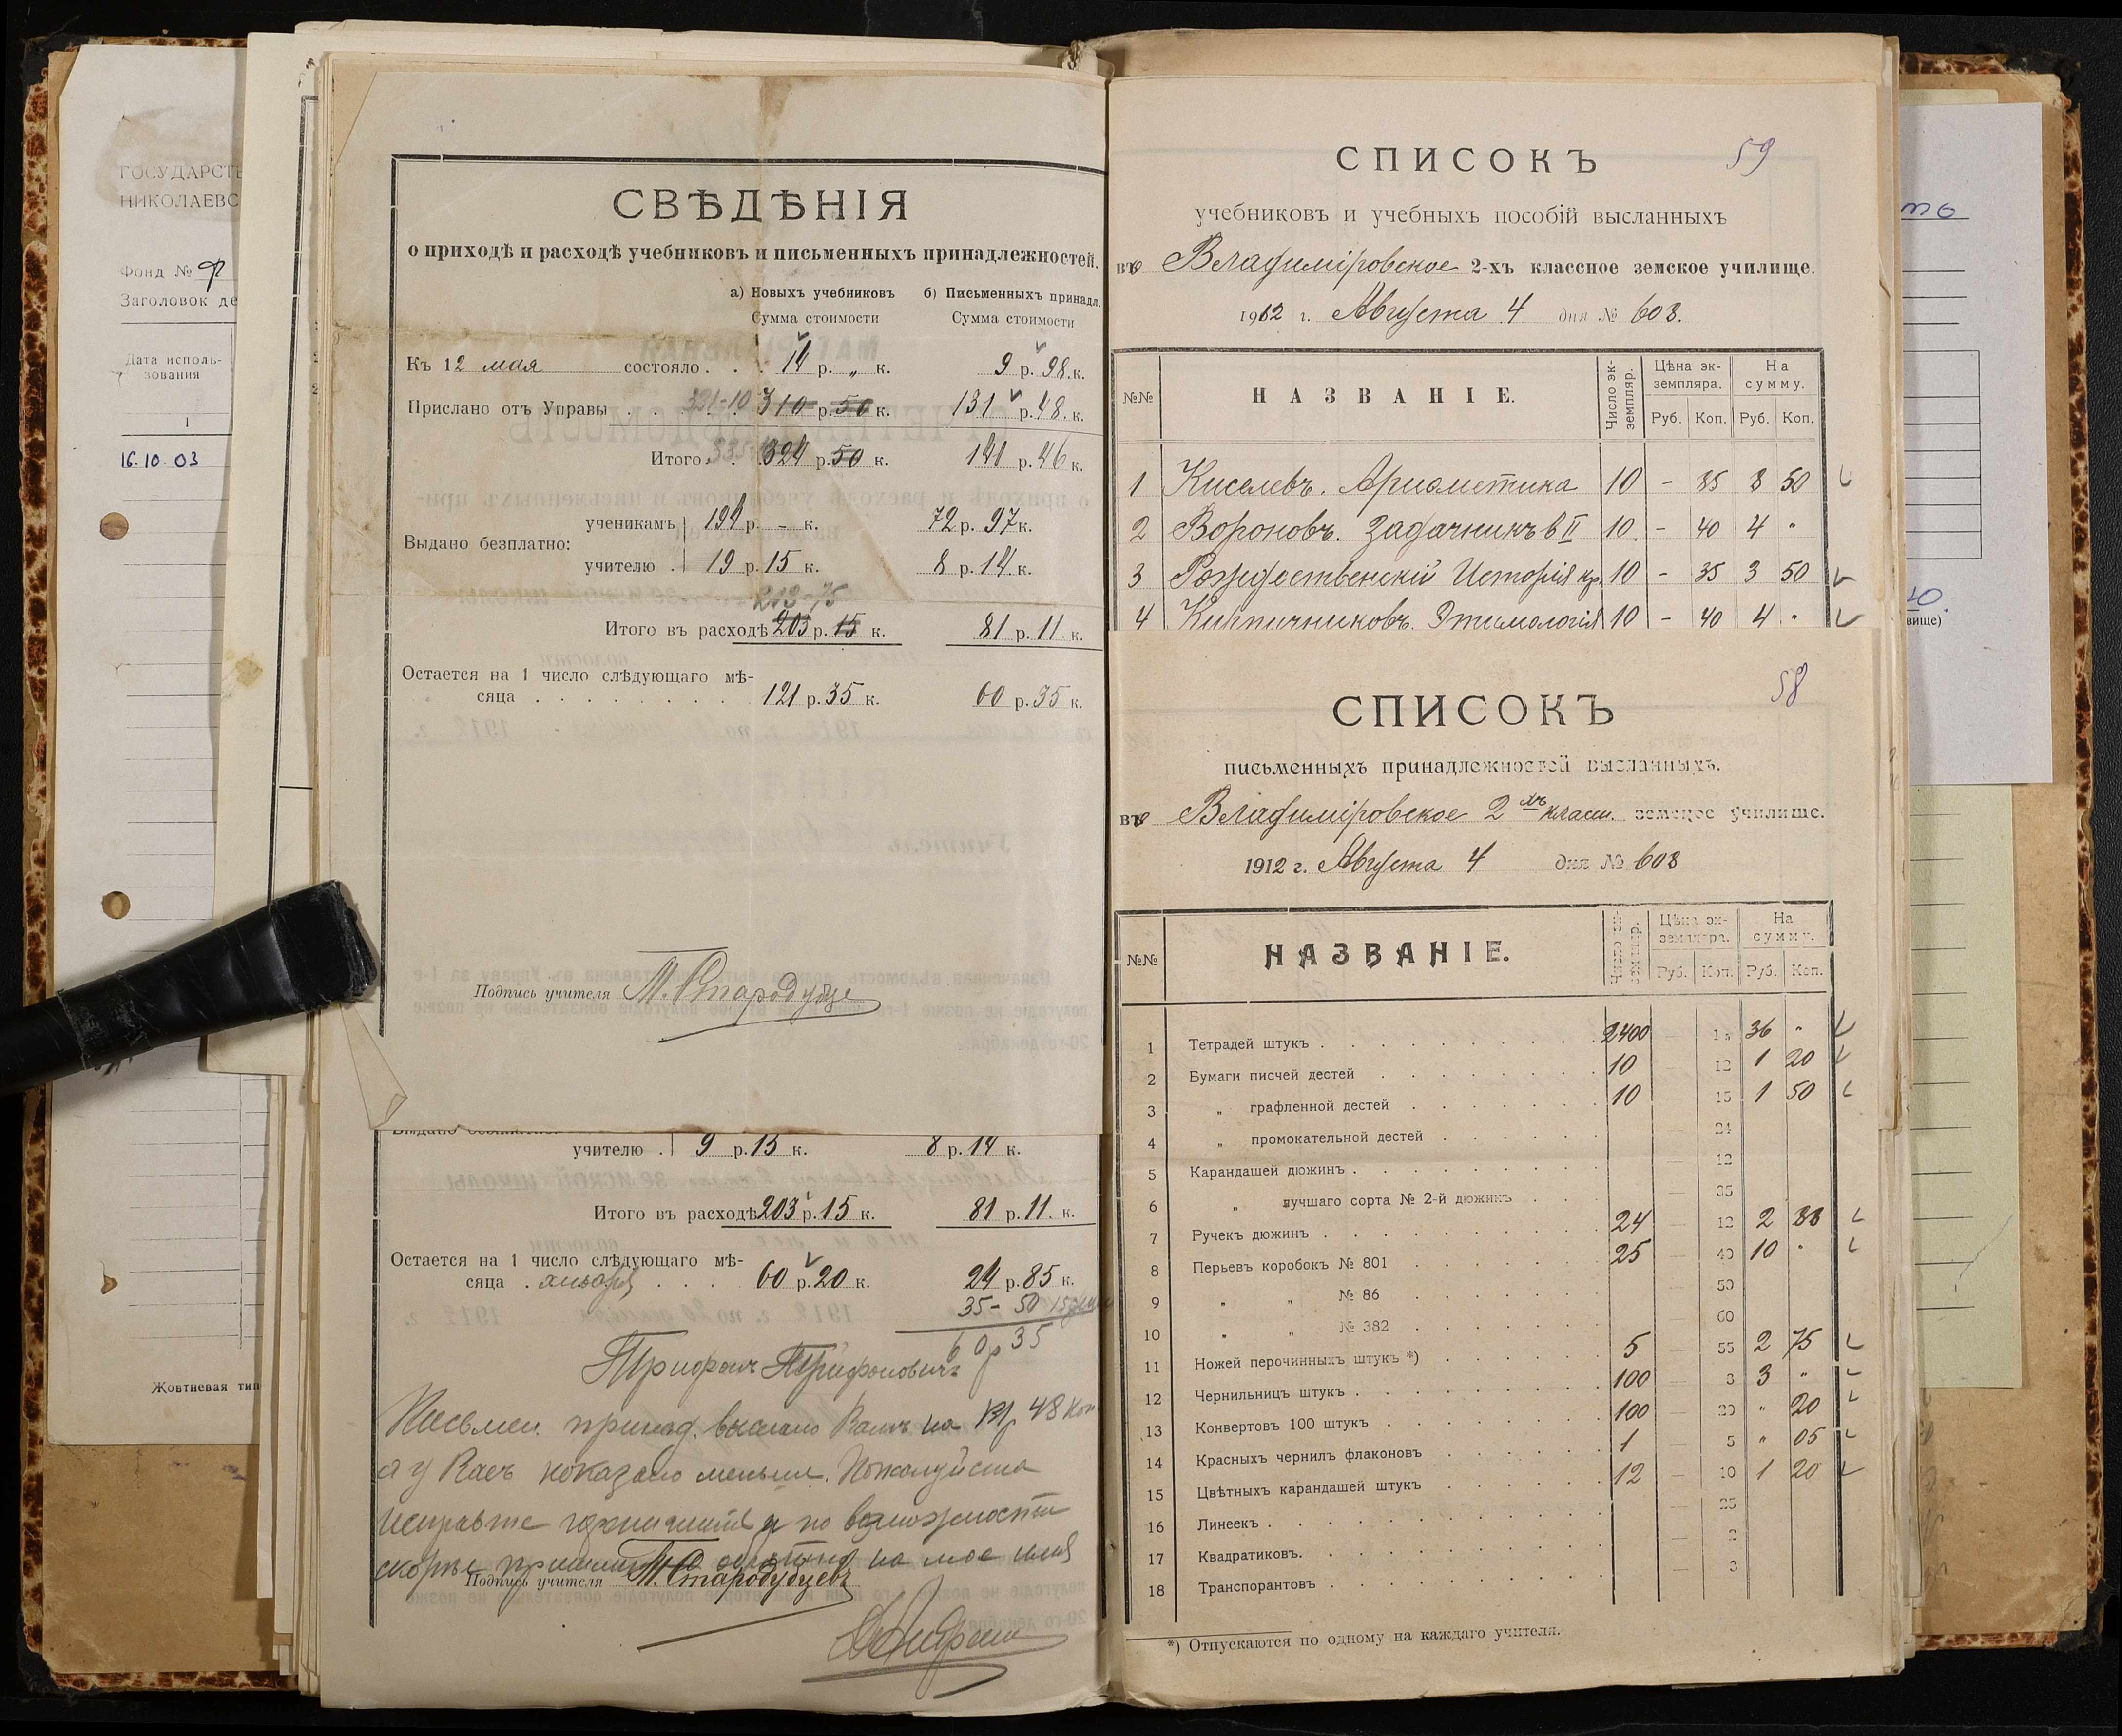 ГОСУДАРСТ
НИКОЛАЕВС
Фонд №
Заголовок де
Дата исполь-
зования
1
16.10.03
Жовтневая тип
СВѢДѢНІЯ
о приходѣ и расходѣ учебниковъ и письменныхъ принадлежностей.
а) Новыхъ учебниковъ б) Письменныхъ принадл.
Сумма стоимости Сумма стоимости
Къ 12 мая состояло . . . 14 р. „ к. 9 р. 98 к.
Прислано отъ Управы . . 321-10 310 р. 50 к. 131 р. 48 к.
Итого . . 335 324 р. 50 к. 141 р. 46 к.
Выдано безплатно:
ученикамъ 194 р. - к. 72 р. 97 к.
учителю . 19 р. 15 к. 8 р. 14 к.
213-75
Итого въ расходѣ 203 р. 15 к. 81 р. 11 к.
Остается на 1 число слѣдующаго мѣ-
сяца . . . . . . . . 121 р. 35 к. 60 р. 35 к.
Подпись учителя М. Стародубце
учителю . 9 р. 15 к. 8 р. 14 к.
Итого въ расходѣ 203 р. 15 к. 81 р. 11. к.
Остается на 1 число слѣдующаго мѣ-
сяца . января . . . 60 р. 20 к. 24 р. 85 к.
35 - 50
60р 35
Трифонъ Трифоновичъ
Письмен. принад. выслано Вамъ на 131р 48 коп
а у Васъ показано меньше. Пожалуйста
исправте и по возможности
скорѣе обратно на мое имя
Подпись учителя М. Стародубцевъ
СПИСОКЪ 59
учебниковъ и учебныхъ пособій высланныхъ
въ Владиміровское 2-хъ классное земское училище.
1912 г. Августа 4 дня № 608.
№№ НАЗВАНІЕ. Число эк-земпляр. Цѣна эк-земпляра. На сумму.
Руб. Коп. Руб. Коп.
1 Киселевъ. Ариѳметика 10 - 85 8 50
2 Вороновъ. Задачникъ в II 10. - 40 4 "
3 Рождественскій Исторія кр. 10 - 35 3 50
4 Кирпичниковъ. Этимологія 10 - 40 4 "
58
СПИСОКЪ
письменныхъ принадлежностей высланныхъ.
въ Владиміровское 2 хъ класн. земское училище.
1912 г. Августа 4 дня № 608
№№ НАЗВАНІЕ. Число эк-земпляр. Цѣна эк-земпляра. На сумму.
Руб. Коп. Руб. Коп.
1 Тетрадей штукъ . 2400 — 1 5 36 "
2 Бумаги писчей дестей . 10 — 12 1 20
3 „ графленной дестей . 10 15 1 50
4 „ промокательной дестей . — 24
5 Карандашей дюжинъ . — 12
6 „ лучшаго сорта № 2-й дюжинъ . 35
7 Ручекъ дюжинъ . 24 — 12 2 88
8 Перьевъ коробокъ № 801 . 25 — 40 10 "
9 „ „ № 86 . 50
10 „ „ № 382 . 60
11 Ножей перочинныхъ штукъ *) . 5 — 55 2 75
12 Чернильницъ штукъ . 100 3 3 "
13 Конвертовъ 100 штукъ . 100 — 20 " 20
14 Красныхъ чернилъ флаконовъ . 1 5 " 05
15 Цвѣтныхъ карандашей штукъ . 12 — 10 1 20
16 Линеекъ . — 25
17 Квадратиковъ. —
18 Транспорантовъ . — 3
*) Отпускаются по одному на каждаго учителя.
вище)